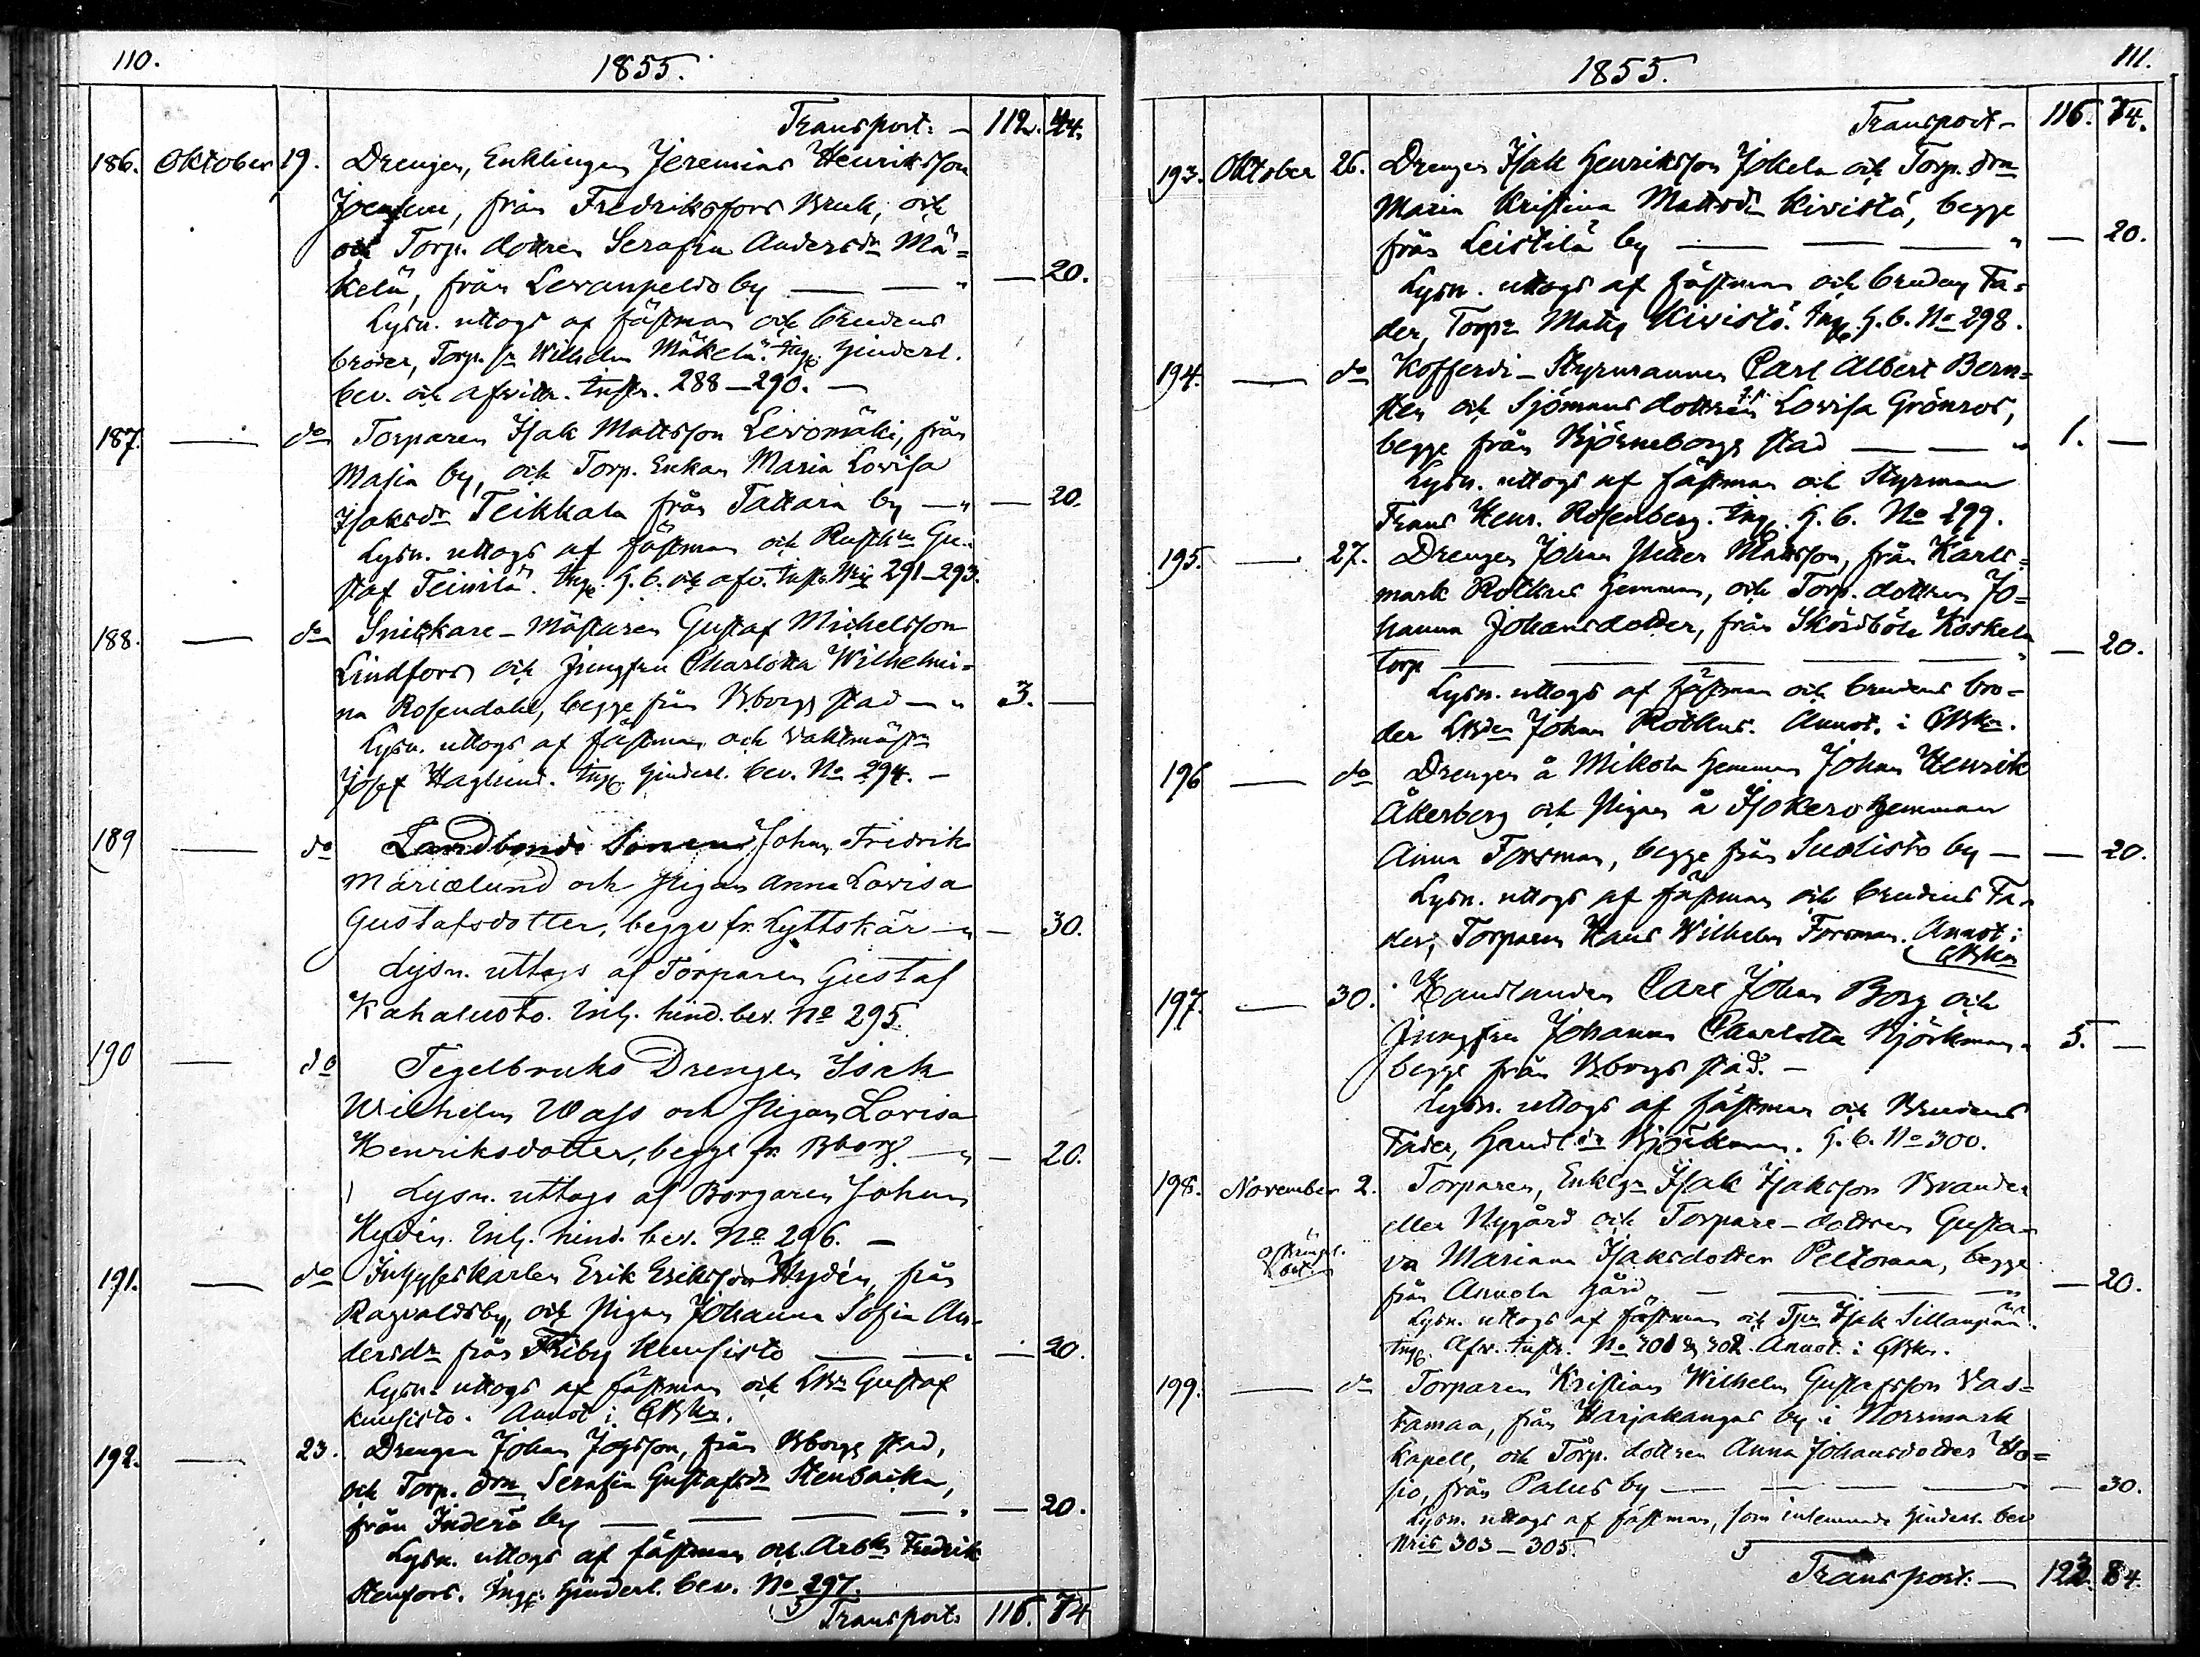 110.
1855.
Transport: — 112. 44.
186. Oktober 19. Drengen, Enklingen Jeremias Henriksson
från Fredriksfors Bruk, och
och Torp. dottren Serafia Andersdr Mä=
kelä, från Levanpeldo by — — " — 20.
Lysn. uttogs af fästman och brudens
broder, Torp. sn Wilhelm Mäkelä. Ingf. hindersl.
bev. och afvittr. instr. 288–290. —
187. — do Torparen Isak Mattsson Levomäki, från
Masia by, och Torp. Enkan Maria Lovisa
Isaksdr Teikkala från Tattara by — " — 20.
Lysn. uttogs af fästman och Rusth:n Gu=
staf Teinilä. Ingf. h. b. och afv. instr. Nris 291–293.
188. — do Snickare-Mästaren Gustaf Michelsson
Lindfors och Jungfru Charlotta Wilhelmi=
na Rosendahl, begge från Bborgs stad — " 3. —
Lysn. uttogs af fästman och Vaktmästn
Josef Haglund. Ingf. hindersl. bev. No 294. —
189 — do Landbonde Sonen Johan Fredrik
Mariælund och Pigan Anna Lovisa
Gustafsdotter, begge fr. Lyttskär — " — 30.
Lysn. uttogs af Torparen Gustaf
Kahaluoto. Inl. hind. bev. No 295.
190 — do Tegelbruks Drengen Isak
Wilhelm Wass och Pigan Lovisa
Henriksdotter, begge fr. Bborg. — " — 20.
Lysn. uttogs af Borgaren Johan
Hydén. Inl. hind. bev. No 296. —
191. — do Inhyseskarlen Erik Eriksson Hydén, från
Ragvaldsby, och Pigan Johanna Sofia An=
dersdr från Friby Kuusisto — — " — 20.
Lysn. uttogs af fästman och Gustaf
Kuusisto. Annot. i
192. — 23. Drengen Johan från Bborgs stad,
och Torp. drn Serafia Gustafsdr Stenbacka,
från Inderö by — — — — " — 20.
Lysn. uttogs af fästman och Arbkn Fredrik
Stenfors. Ingf. hindersl. bev. No 297.
Transport: 115. 74
111.
1855.
Transport — 115. 74.
193. Oktober 26. Drengen Isak Henriksson Jokela och Torp. drn
Maria Kristina Mattsdr Kivistö, begge
från Leistilä by — — — " — 20.
Lysn. uttogs af fästman och brudens Fa=
der, Torpn Matts Kivistö. Ingf. h. b. No 298.
194. — do Kofferdi-Styrmannen Carl Albert Bern=
sten och Sjömansdottren Lovisa Grönroos,
begge från Björneborgs stad — — " 1. —
Lysn. uttogs af fästman och Styrman
Frans Henr. Rosenberg. Ingf. h. b. No 299.
195. — 27. Drengen Johan Petter Mattsson, från Karls=
mark Rotkus hemman, och Torp. dottren Jo=
hanna Johansdotter, från Skördböle Koskela
torp — — — — — " — 20.
Lysn. uttogs af fästman och brudens bro=
der Johan Rotkus. Annot. i
196 — do Drengen å Mikola hemman Johan Henrik
Åkerberg och Pigan å Isokero hemman
Anna Forsman, begge från Suolisto by — — 20.
Lysn. uttogs af fästman och brudens Fa=
der, Torparen Hans Wilhelm Forsman. Annot. i
197. — 30. Handlanden Carl Johan Borg och
Jungfru Johanna Charlotta Björkman " 5. —
begge från Bborgs stad. —
Lysn. uttogs af fästman och Brudens
Fader, Handl:dn Björkman. h. b. No 300.
198. November 2. Torparen, Enklgn Isak Isaksson Brander
eller Nygård och Torpare-dottren Gusta=
va Mariana Isaksdotter Peltomaa, begge
från Annola gård — — — " — 20.
Lysn. uttogs af fästman och Isak Sillanpää.
Ingf. Afv. instr. No 301 & 302. Annot. i
199. — do Torparen Kristian Wilhelm Gustafsson Vas=
tamaa, från Harjakangas by i Norrmark
Kapell, och Torp. dottren Anna Johansdotter
från Palus by — — — — — 30.
Lysn. uttogs af fästman, som inlemnade hindersl. bev
Nris 303–305.
Transport: — 123. 84.